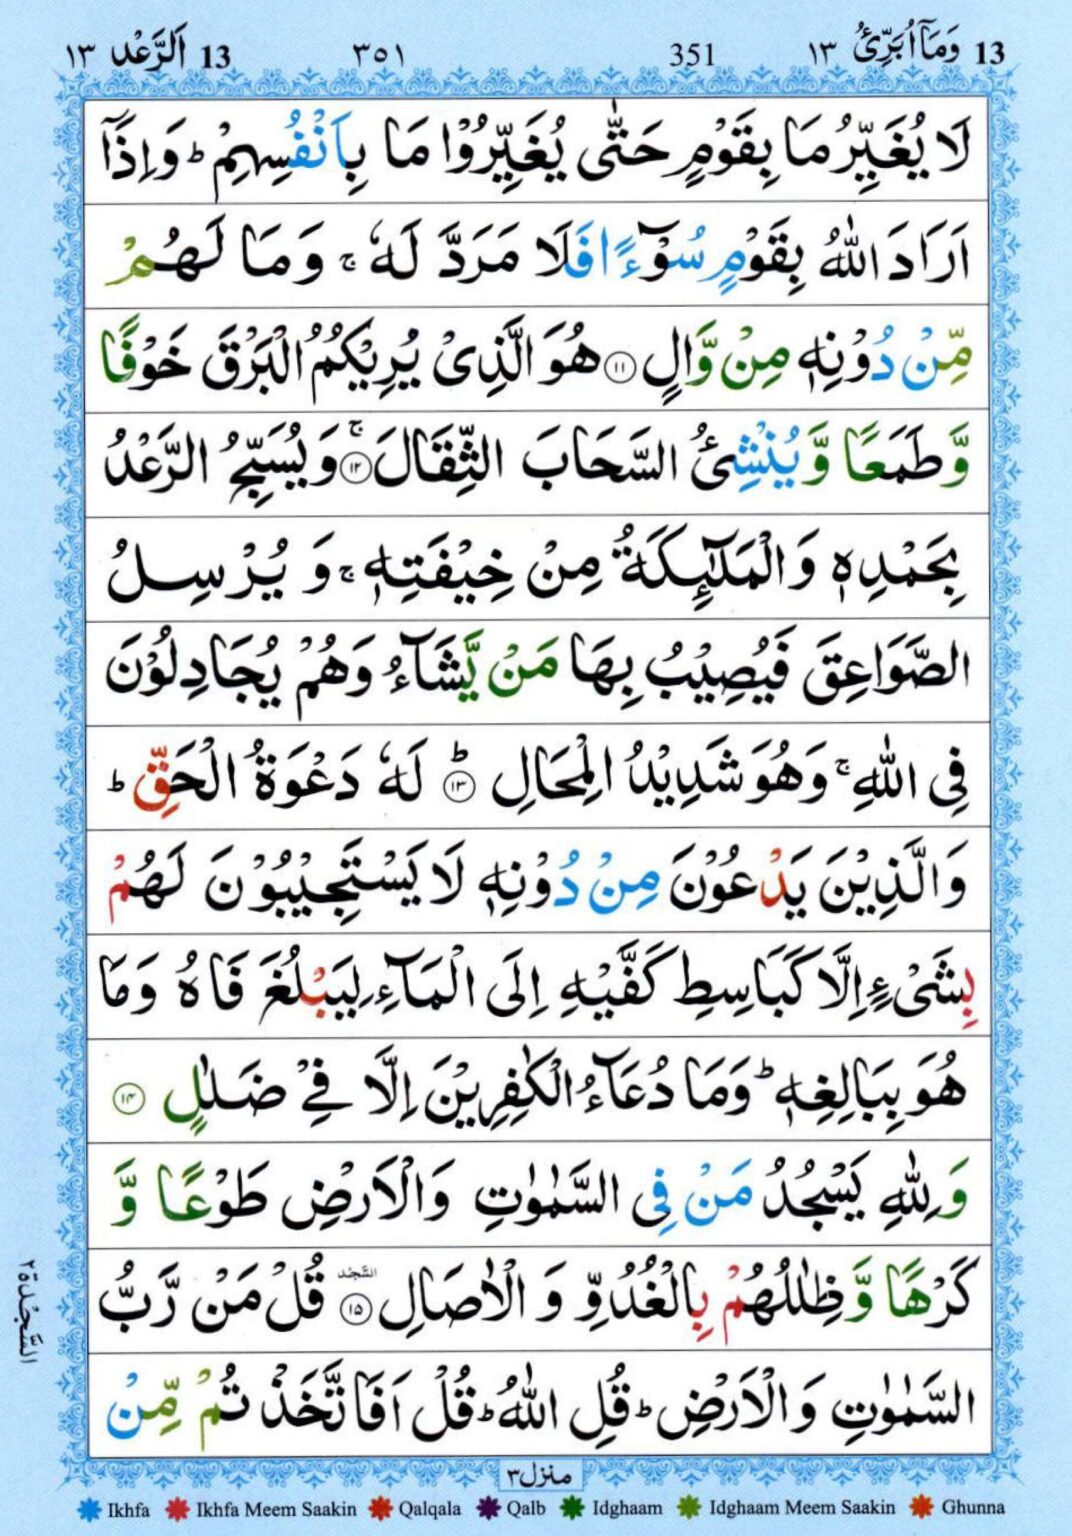 13 وَمَاۤ اُبَرِّئُ ١٣ 351 ٣٥١ 13 اَلرَّعْد ١٣
لَا يُغَيِّرُ مَا بِقَوْمٍ حَتّٰى يُغَيِّرُوْا مَا بِاَنْفُسِهِمْ ؕ وَاِذَاۤ
اَرَادَ اللّٰهُ بِقَوْمٍ سُوْٓءًا فَلَا مَرَدَّ لَهٗ ۚ وَمَا لَهُمْ
مِّنْ دُوْنِهٖ مِنْ وَّالٍ ۝١١ هُوَ الَّذِىْ يُرِيْكُمُ الْبَرْقَ خَوْفًا
وَّطَمَعًا وَّيُنْشِئُ السَّحَابَ الثِّقَالَ ۚ ۝١٢ وَيُسَبِّحُ الرَّعْدُ
بِحَمْدِهٖ وَالْمَلٰٓئِكَةُ مِنْ خِيْفَتِهٖ ۚ وَ يُرْسِلُ
الصَّوَاعِقَ فَيُصِيْبُ بِهَا مَنْ يَّشَآءُ وَهُمْ يُجَادِلُوْنَ
فِى اللّٰهِ ۚ وَهُوَ شَدِيْدُ الْمِحَالِ ؕ ۝١٣ لَهٗ دَعْوَةُ الْحَقِّ ؕ
وَالَّذِيْنَ يَدْعُوْنَ مِنْ دُوْنِهٖ لَا يَسْتَجِيْبُوْنَ لَهُمْ
بِشَىْءٍ اِلَّا كَبَاسِطِ كَفَّيْهِ اِلَى الْمَآءِ لِيَبْلُغَ فَاهُ وَمَا
هُوَ بِبَالِغِهٖ ؕ وَمَا دُعَآءُ الْكٰفِرِيْنَ اِلَّا فِىْ ضَلٰلٍ ۝١٤
وَلِلّٰهِ يَسْجُدُ مَنْ فِى السَّمٰوٰتِ وَالْاَرْضِ طَوْعًا وَّ
كَرْهًا وَّظِلٰلُهُمْ بِالْغُدُوِّ وَ الْاٰصَالِ ۝١٥ السَّجْدَة قُلْ مَنْ رَّبُّ
السَّمٰوٰتِ وَالْاَرْضِ ؕ قُلِ اللّٰهُ ؕ قُلْ اَفَاتَّخَذْتُمْ مِّنْ
السَّجْدَة ٢
منزل ٣
Ikhfa Ikhfa Meem Saakin Qalqala Qalb Idghaam Idghaam Meem Saakin Ghunna